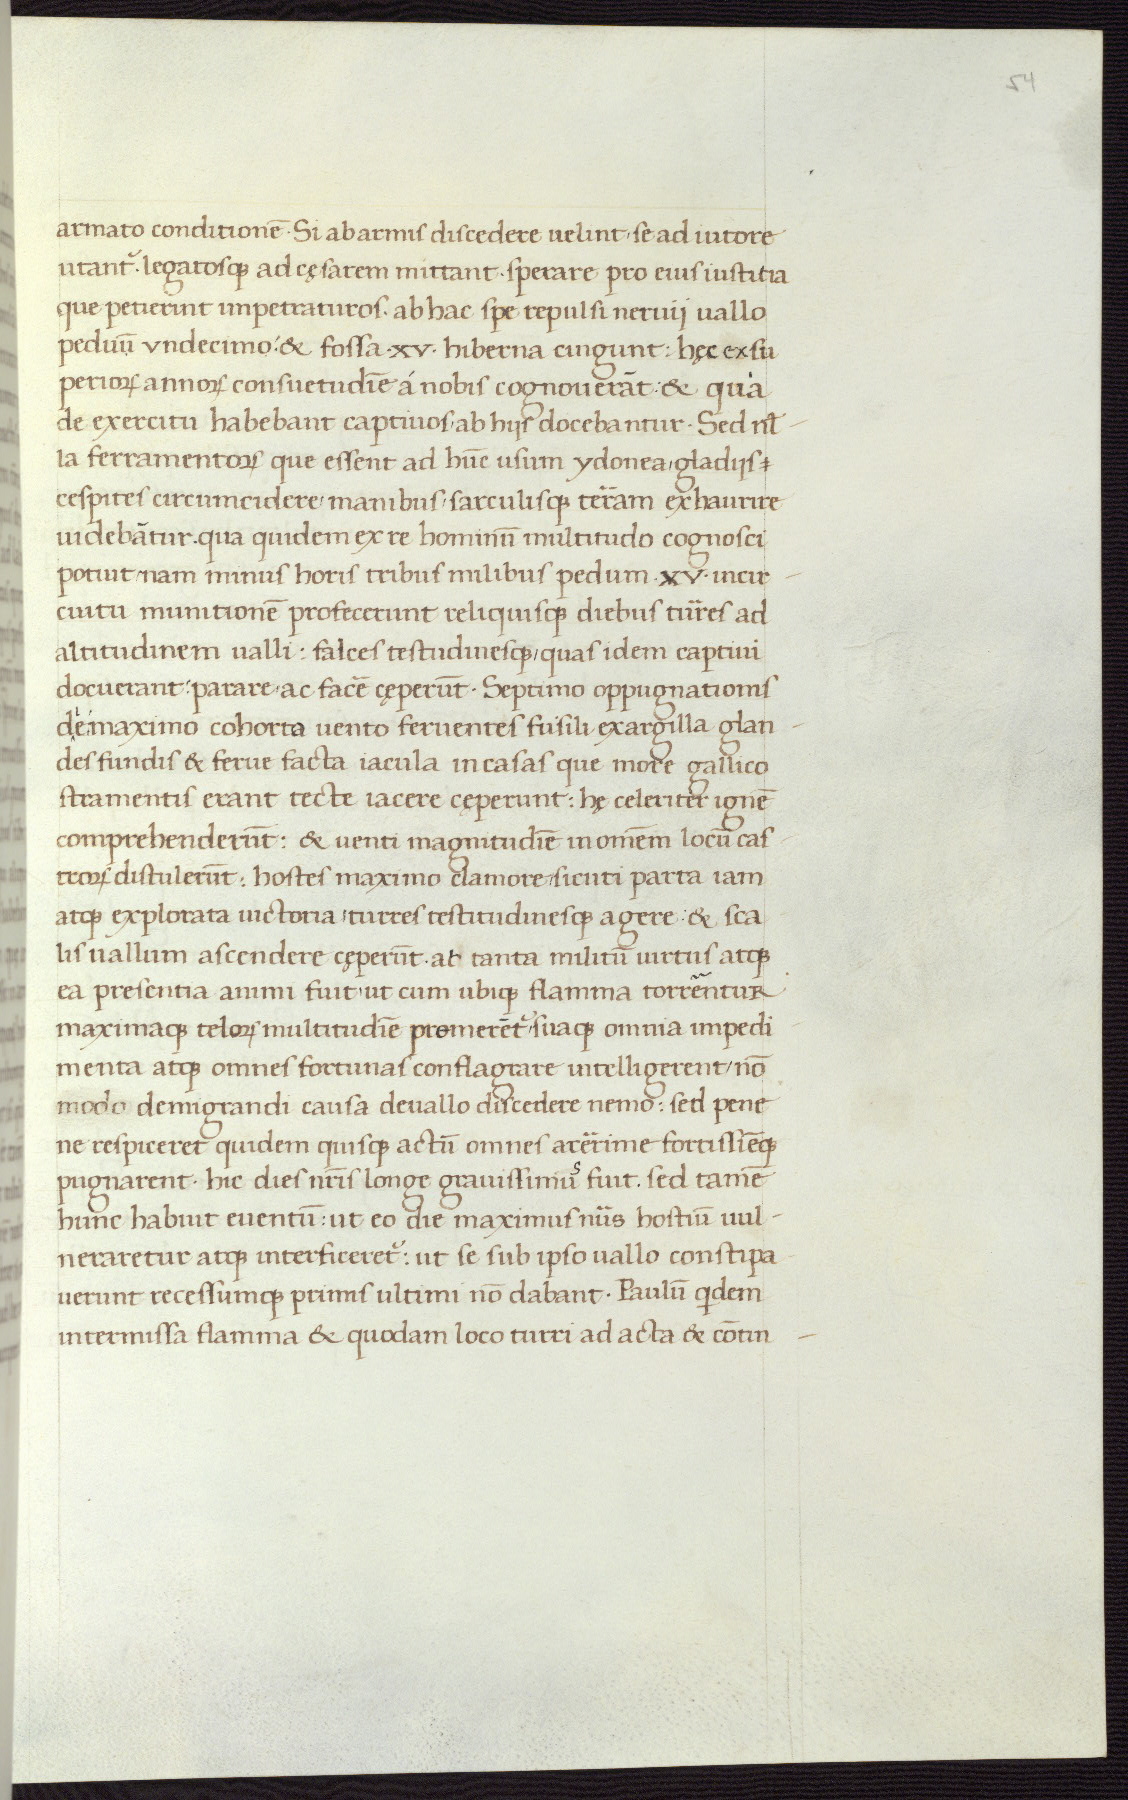 54
armato conditionē · Si ab armis discedere uelint, se ad iutore
utant᷑ · legatosqꝫ ad cęsarem mittant · sperare pro eius iustitia
que petierint impetraturos · ab hac spe repulsi neruij uallo
peduū vndecimo : & fossa · xv · hiberna cingunt : hęc ex su
perioꝝ annoꝝ consuetudīe á nobis cognouerāt : & quia
de exercitu habebant captiuos, ab hijs docebantur · Sed nł
la ferramentoꝝ que essent ad hūc usum ydonea, gladijs
cespites circumcidere, manibus, sarculisqꝫ terram exhaurire
uidebātur · qua quidem ex re hominū multitudo cognosci
potuit, nam minus horis tribus milibus pedum · xv · in cir
cuitu munitionē profecerunt reliquisqꝫ diebus turres ad
altitudinem ualli : falces testudinesqꝫ, quas idem captiui
docuerant : parare, ac facē cęperūt · Septimo oppugnationis
die maximo cohorta uento feruentes fusili ex argilla glan
des fundis & ferue facta iacula in casas que more gallico
stramentis erant tecte iacere cęperunt : hę celeriter ignē
comprehenderūt : & uenti magnitudīe in omēm locū cas
troꝝ distulerūt : hostes maximo clamore, sicuti parta iam
atqꝫ explorata uictoria, turres testitudinesqꝫ agere : & sca
lis uallum ascendere cęperūt · at tanta militū uirtus atqꝫ
ea presentia animi fuit, ut cum ubiqꝫ flamma torrerentur
maximaqꝫ teloꝝ multitudīe premerēt᷑, suaqꝫ omnia impedi
menta atqꝫ omnes fortunas conflagrare intelligerent, nō
modo demigrandi causa deuallo discedere nemo : sed pene
ne respiceret quidem quisqꝫ actū omnes acerrime fortissīeqꝫ
pugnarent · hic dies nr̄is longe grauissimus fuit · sed tamē
hunc habuit euentū : ut eo die maximus nūs hostiū uul
neraretur atqꝫ interficeret᷑ : ut se sub ipso uallo constipa
uerunt recessumqꝫ primis ultimi nō dabant · Paulū qͥdem
intermissa flamma & quodam loco turri ad acta & cōtin